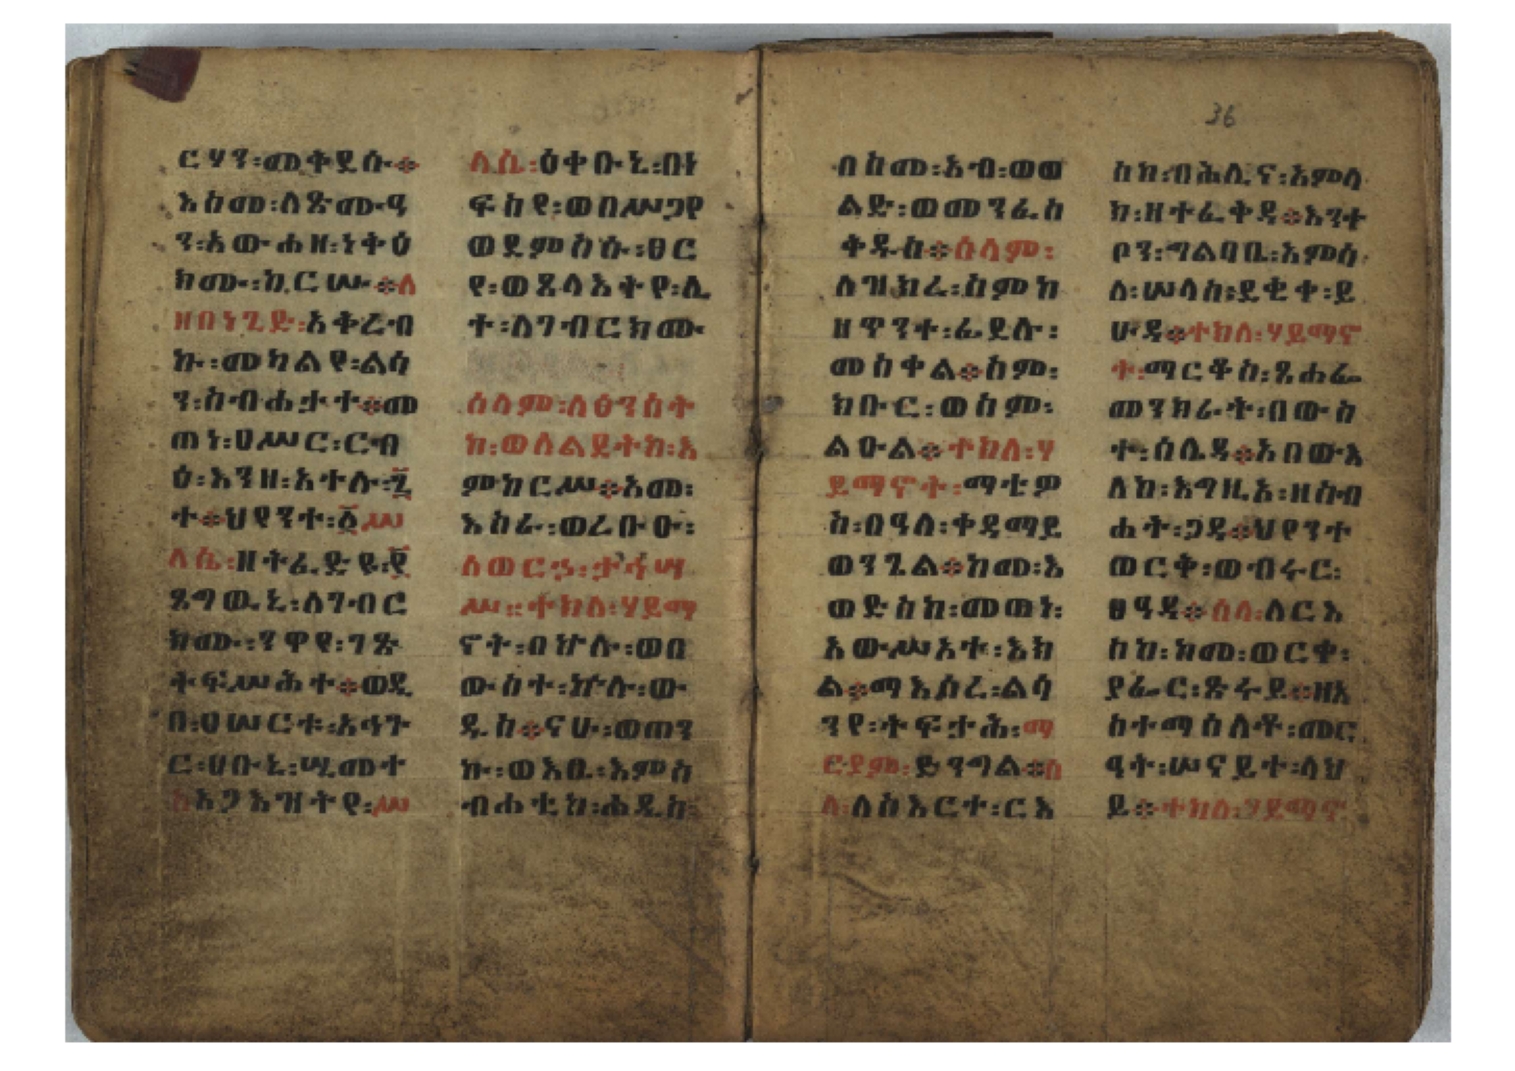 ርሃን፡መቅደሱ፨
እስመ፡ለጽሙዓ
ን፡አውሐዘ፡ነቅዕ
ክሙ፡ከርሡ፨ለ
ዘበነጊድ፡አቅረብ
ኩ፡መካልየ፡ልሳ
ን፡ስብሐታተ፨መ
ጠነ፡ሀሥር፡ርኅብ
ዕ፡እንዘ፡አተሉ፡፯
ተ፨ህየንተ፡፩ሥ
ለሴ፡ዘትፈድይ፡፼
ጸግዉኒ፡ለገብር
ክሙ፡ንዋየ፡ገጽ
ትፍሥሕተ፨ወዲ
በ፡ሀሠርተ፡አኅጉ
ር፡ሀቡኒ፡ሢመተ
አጋእዝትየ፡ሥ
ላሴ፡ዕቀቡኒ፡በነ
ፍስየ፡ወበሥጋየ
ወደምስሱ፡ፀር
የ፡ወጸላእትየ፡ሊ
ተ፡ለገብርክሙ
ሰላም፡ለፅንሰት
ከ፡ወለልደትከ፡እ
ምከርሥ፨አመ፡
እስራ፡ወረቡዑ፡
ለወርኃ፡ታኅሣ
ሥ፡፡ተክለ፡ሃይማ
ኖት፡በኵሉ፡ወበ
ውስተ፡ኵሉ፡ው
ዱስ፨ናሁ፡ወጠን
ኩ፡ወእቤ፡እምስ
ብሐቲከ፡ሐዲስ
በስመ፡አብ፡ወወ
ልድ፡ወመንፈስ
ቅዱስ፨ሰላም፡
ለዝክረ፡ስምከ
ዘጥንተ፡ፊደሉ፡
መስቀል፨ስም፡
ክቡር፡ወስም፡
ልዑል፨ተክለ፡ሃ
ይማኖት፡ማቴዎ
ስ፡በዓለ፡ቀዳማይ
ወንጌል፨ከመ፡እ
ወድስከ፡መጠነ፡
አውሥአተ፡እክ
ል፨ማእሰረ፡ልሳ
ንየ፡ትፍታሕ፡ማ
ርያም፡ድንግል፨ሰ
ላ፡ለስእርተ፡ርእ
ስከ፡ብሕሊና፡አምላ
ክ፡ዘተፈቅዳ፨እንተ
ቦን፡ግልባቤ፡እምሰ
ለ፡ሠላስ፡ደቂቀ፡ይ
ሁዳ፨ተክለ፡ሃይማኖ
ት፡ማርቆስ፡ጸሐፌ
መንክራት፡በውስ
ተ፡ሰሌዳ፨አበውእ
ለከ፡እግዚአ፡ዘስብ
ሐት፡ጋዳ፨ህየንተ
ወርቅ፡ወብሩር፡
ፀዓዳ፨ሰላ፡ለርእ
ስከ፡ከመ፡ወርቀ፡
ያፌር፡ጽሩይ፨ዘአ
ስተማሰሎቶ፡መር
ዓት፡ሠናይተ፡ላህ
ይ፨ተክለ፡ሃይማኖ
36